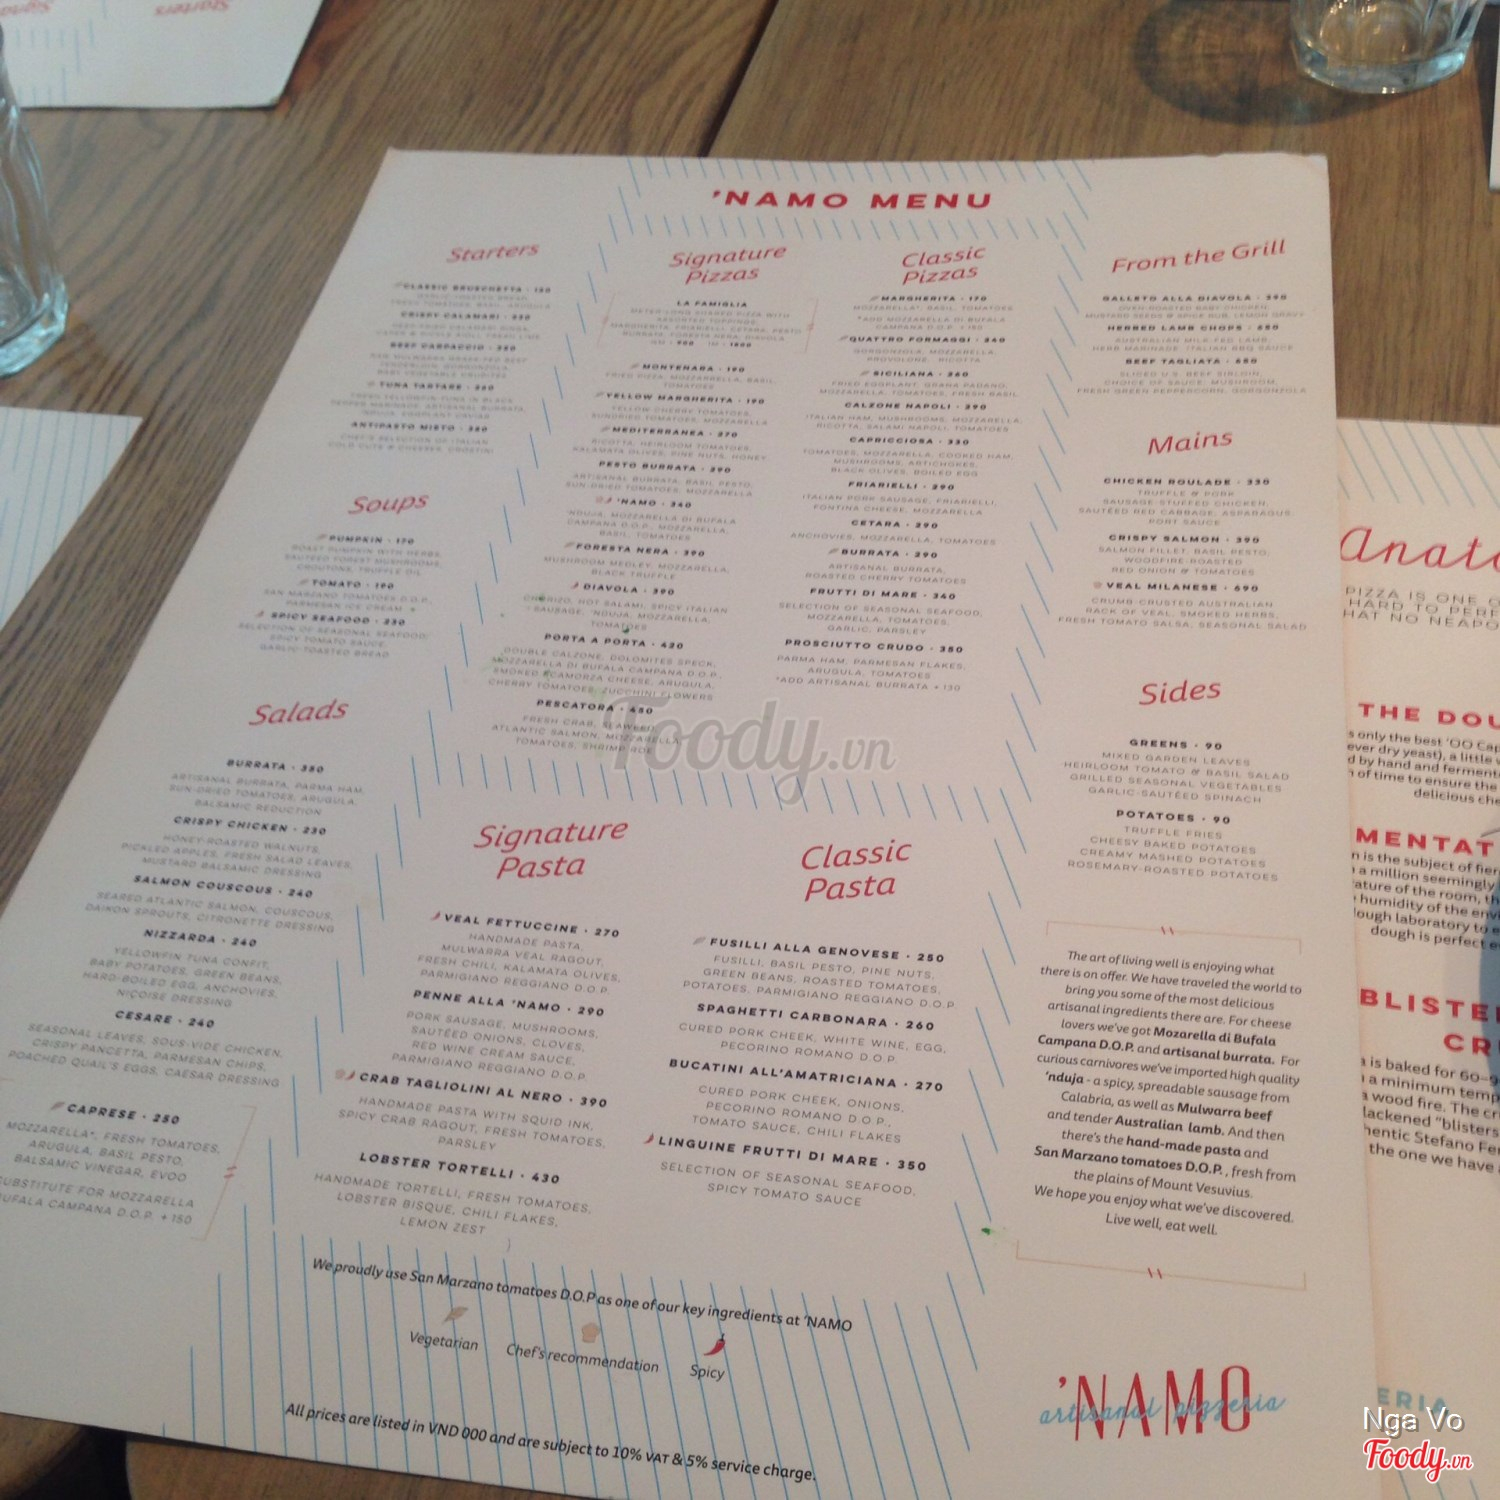 'NAMO MENU
Starters
CLASSIC BRUSCHETTA · 150
CRISPY CALAMARI · 230
BEEF CARPACCIO · 350
TUNA TARTARE · 220
ANTIPASTO MISTO · 350
CHEF'S SELECTION OF ITALIAN
COLD CUTS & CHEESES, CROSTINI
Soups
PUMPKIN · 170
ROAST PUMPKIN WITH HERBS,
SAUTÉED FOREST MUSHROOMS,
CROUTONS, TRUFFLE OIL
TOMATO · 190
SAN MARZANO TOMATOES D.O.P.,
PARMESAN ICE CREAM
SPICY SEAFOOD · 230
SELECTION OF SEASONAL SEAFOOD,
SPICY TOMATO SAUCE,
GARLIC TOASTED BREAD
Salads
BURRATA · 350
ARTISANAL BURRATA, PARMA HAM,
SUN-DRIED TOMATOES, ARUGULA,
BALSAMIC REDUCTION
CRISPY CHICKEN · 230
HONEY-ROASTED WALNUTS,
PICKLED APPLES, FRESH SALAD LEAVES,
MUSTARD BALSAMIC DRESSING
SALMON COUSCOUS · 240
SEARED ATLANTIC SALMON, COUSCOUS,
DAIKON SPROUTS, CITRONETTE DRESSING
NIZZARDA · 240
YELLOWFIN TUNA CONFIT,
BABY POTATOES, GREEN BEANS,
HARD-BOILED EGG, ANCHOVIES,
NIÇOISE DRESSING
CESARE · 240
SEASONAL LEAVES, SOUS-VIDE CHICKEN,
CRISPY PANCETTA, PARMESAN CHIPS,
POACHED QUAIL'S EGGS, CAESAR DRESSING
CAPRESE · 250
MOZZARELLA*, FRESH TOMATOES,
ARUGULA, BASIL PESTO,
BALSAMIC VINEGAR, EVOO
SUBSTITUTE FOR MOZZARELLA
BUFALA CAMPANA D.O.P. + 150
Signature
Pizzas
LA FAMIGLIA
METER-LONG SHARED PIZZA WITH
ASSORTED TOPPINGS,
MARGHERITA, FRIARIELLI, CETARA, PESTO
BURRATA, FORESTA NERA, DIAVOLA
MONTENARA · 190
FRIED PIZZA, MOZZARELLA, BASIL,
TOMATOES
YELLOW MARGHERITA · 190
YELLOW CHERRY TOMATOES,
SUNDRIED TOMATOES, MOZZARELLA
MEDITERRANEA · 270
RICOTTA, HEIRLOOM TOMATOES,
KALAMATA OLIVES, PINE NUTS, HONEY
PESTO BURRATA · 290
ARTISANAL BURRATA, BASIL PESTO,
SUN-DRIED TOMATOES, MOZZARELLA
'NAMO · 340
'NDUJA, MOZZARELLA DI BUFALA
CAMPANA D.O.P., MOZZARELLA,
BASIL, TOMATOES
FORESTA NERA · 390
MUSHROOM MEDLEY, MOZZARELLA,
BLACK TRUFFLE
DIAVOLA · 390
CHORIZO, HOT SALAMI, SPICY ITALIAN
SAUSAGE, 'NDUJA, MOZZARELLA,
TOMATOES
PORTA A PORTA · 420
DOUBLE CALZONE, DOLOMITES SPECK,
MOZZARELLA DI BUFALA CAMPANA D.O.P.,
SMOKED SCAMORZA CHEESE, ARUGULA,
CHERRY TOMATOES, ZUCCHINI FLOWERS
PESCATORA · 450
FRESH CRAB, SEAWEED,
ATLANTIC SALMON, MOZZARELLA,
TOMATOES, SHRIMP ROE
Classic
Pizzas
MARGHERITA · 170
MOZZARELLA*, BASIL, TOMATOES
*ADD MOZZARELLA DI BUFALA
CAMPANA D.O.P. + 150
QUATTRO FORMAGGI · 240
GORGONZOLA, MOZZARELLA,
PROVOLONE, RICOTTA
SICILIANA · 260
FRIED EGGPLANT, GRANA PADANO,
MOZZARELLA, TOMATOES, FRESH BASIL
CALZONE NAPOLI · 290
ITALIAN HAM, MUSHROOMS, MOZZARELLA,
RICOTTA, SALAMI NAPOLI, TOMATOES
CAPRICCIOSA · 330
TOMATOES, MOZZARELLA, COOKED HAM,
MUSHROOMS, ARTICHOKES,
BLACK OLIVES, BOILED EGG
FRIARIELLI · 290
ITALIAN PORK SAUSAGE, FRIARIELLI,
FONTINA CHEESE, MOZZARELLA
CETARA · 290
ANCHOVIES, MOZZARELLA, TOMATOES
BURRATA · 290
ARTISANAL BURRATA,
ROASTED CHERRY TOMATOES
FRUTTI DI MARE · 340
SELECTION OF SEASONAL SEAFOOD,
MOZZARELLA, TOMATOES,
GARLIC, PARSLEY
PROSCIUTTO CRUDO · 350
PARMA HAM, PARMESAN FLAKES,
ARUGULA, TOMATOES
*ADD ARTISANAL BURRATA + 130
From the Grill
GALLETO ALLA DIAVOLA · 290
OVEN ROASTED BABY CHICKEN,
MUSTARD SEEDS & SPICE RUB, LEMON GRAVY
HERBED LAMB CHOPS · 650
AUSTRALIAN MILK-FED LAMB,
HERB MARINADE, ITALIAN BBQ SAUCE
BEEF TAGLIATA · 650
SLICED U.S. BEEF SIRLOIN,
CHOICE OF SAUCE, MUSHROOM,
FRESH GREEN PEPPERCORN, GORGONZOLA
Mains
CHICKEN ROULADE · 330
TRUFFLE & PORK
SAUSAGE STUFFED CHICKEN,
SAUTÉED RED CABBAGE, ASPARAGUS,
PORT SAUCE
CRISPY SALMON · 390
SALMON FILLET, BASIL PESTO,
WOODFIRE-ROASTED
RED ONION & TOMATOES
VEAL MILANESE · 690
CRUMB-CRUSTED AUSTRALIAN
RACK OF VEAL, SMOKED HERBS,
FRESH TOMATO SALSA, SEASONAL SALAD
Sides
GREENS · 90
MIXED GARDEN LEAVES
HEIRLOOM TOMATO & BASIL SALAD
GRILLED SEASONAL VEGETABLES
GARLIC-SAUTÉED SPINACH
POTATOES · 90
TRUFFLE FRIES
CHEESY BAKED POTATOES
CREAMY MASHED POTATOES
ROSEMARY-ROASTED POTATOES
Signature
Pasta
VEAL FETTUCCINE · 270
HANDMADE PASTA,
MULWARRA VEAL RAGOUT,
FRESH CHILI, KALAMATA OLIVES,
PARMIGIANO REGGIANO D.O.P.
PENNE ALLA 'NAMO · 290
PORK SAUSAGE, MUSHROOMS,
SAUTÉED ONIONS, CLOVES,
RED WINE CREAM SAUCE,
PARMIGIANO REGGIANO D.O.P.
CRAB TAGLIOLINI AL NERO · 390
HANDMADE PASTA WITH SQUID INK,
SPICY CRAB RAGOUT, FRESH TOMATOES,
PARSLEY
LOBSTER TORTELLI · 430
HANDMADE TORTELLI, FRESH TOMATOES,
LOBSTER BISQUE, CHILI FLAKES,
LEMON ZEST
Classic
Pasta
FUSILLI ALLA GENOVESE · 250
FUSILLI, BASIL PESTO, PINE NUTS,
GREEN BEANS, ROASTED TOMATOES,
POTATOES, PARMIGIANO REGGIANO D.O.P.
SPAGHETTI CARBONARA · 260
CURED PORK CHEEK, WHITE WINE, EGG,
PECORINO ROMANO D.O.P.
BUCATINI ALL'AMATRICIANA · 270
CURED PORK CHEEK, ONIONS,
PECORINO ROMANO D.O.P.,
TOMATO SAUCE, CHILI FLAKES
LINGUINE FRUTTI DI MARE · 350
SELECTION OF SEASONAL SEAFOOD,
SPICY TOMATO SAUCE
The art of living well is enjoying what
there is on offer. We have traveled the world to
bring you some of the most delicious
artisanal ingredients there are. For cheese
lovers we've got Mozarella di Bufala
Campana D.O.P. and artisanal burrata. For
curious carnivores we've imported high quality
'nduja - a spicy, spreadable sausage from
Calabria, as well as Mulwarra beef
and tender Australian lamb. And then
there's the hand-made pasta and
San Marzano tomatoes D.O.P. , fresh from
the plains of Mount Vesuvius.
We hope you enjoy what we've discovered.
Live well, eat well.
We proudly use San Marzano tomatoes D.O.P as one of our key ingredients at 'NAMO
Vegetarian
Chef's recommendation
Spicy
All prices are listed in VND 000 and are subject to 10% VAT & 5% service charge.
'NAMO
artisanal pizzeria
Anato
PIZZA IS ONE O
HARD TO PERF
HAT NO NEAPO
THE DOU
s only the best 'OO Cap
ever dry yeast), a little w
d by hand and ferment
n of time to ensure the
delicious che
MENTAT
n is the subject of fier
a million seemingly
rature of the room, th
humidity of the envi
dough laboratory to e
dough is perfect e
BLISTE
CR
a is baked for 60-9
a minimum temp
a wood fire. The cr
lackened "blisters
hentic Stefano Fer
the one we have
ERIA
Foody.vn
Nga Vo
Foody.vn